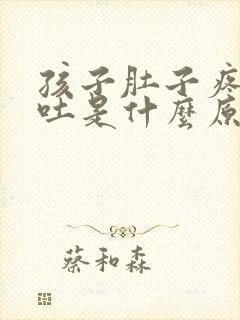 孩子肚子疼
吐是什麼原
蔡和森